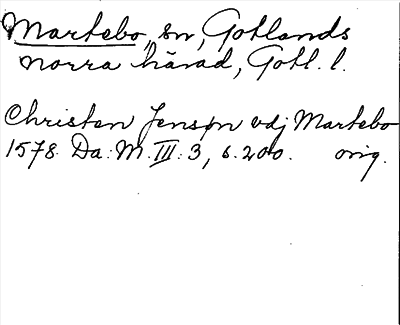 Martebo, sn, Gotlands
norra härad, Gotl. l.
Christen Jensøn vdj Martebo
1578. Da: M. III: 3, s. 200. orig.